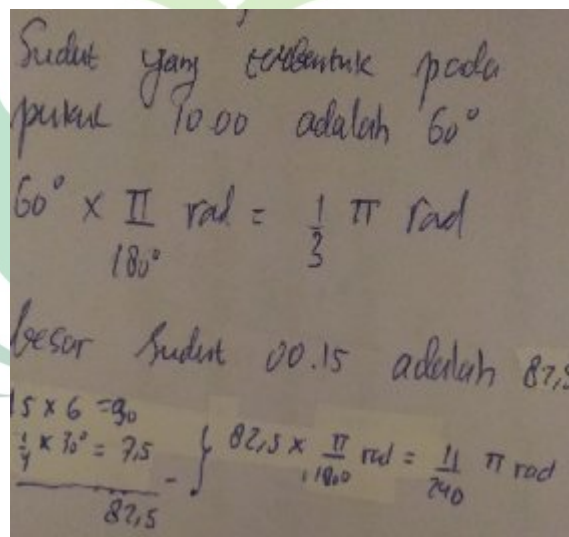 Sudut yang terbentuk pada
pukul 10.00 adalah 60°
60° × π/180° rad = 1/3 π rad
besar sudut 00.15 adalah 82,5
15 × 6 = 90
1/4 × 30° = 7,5
82,5
82,5 × π/180 rad = 11/240 π rad